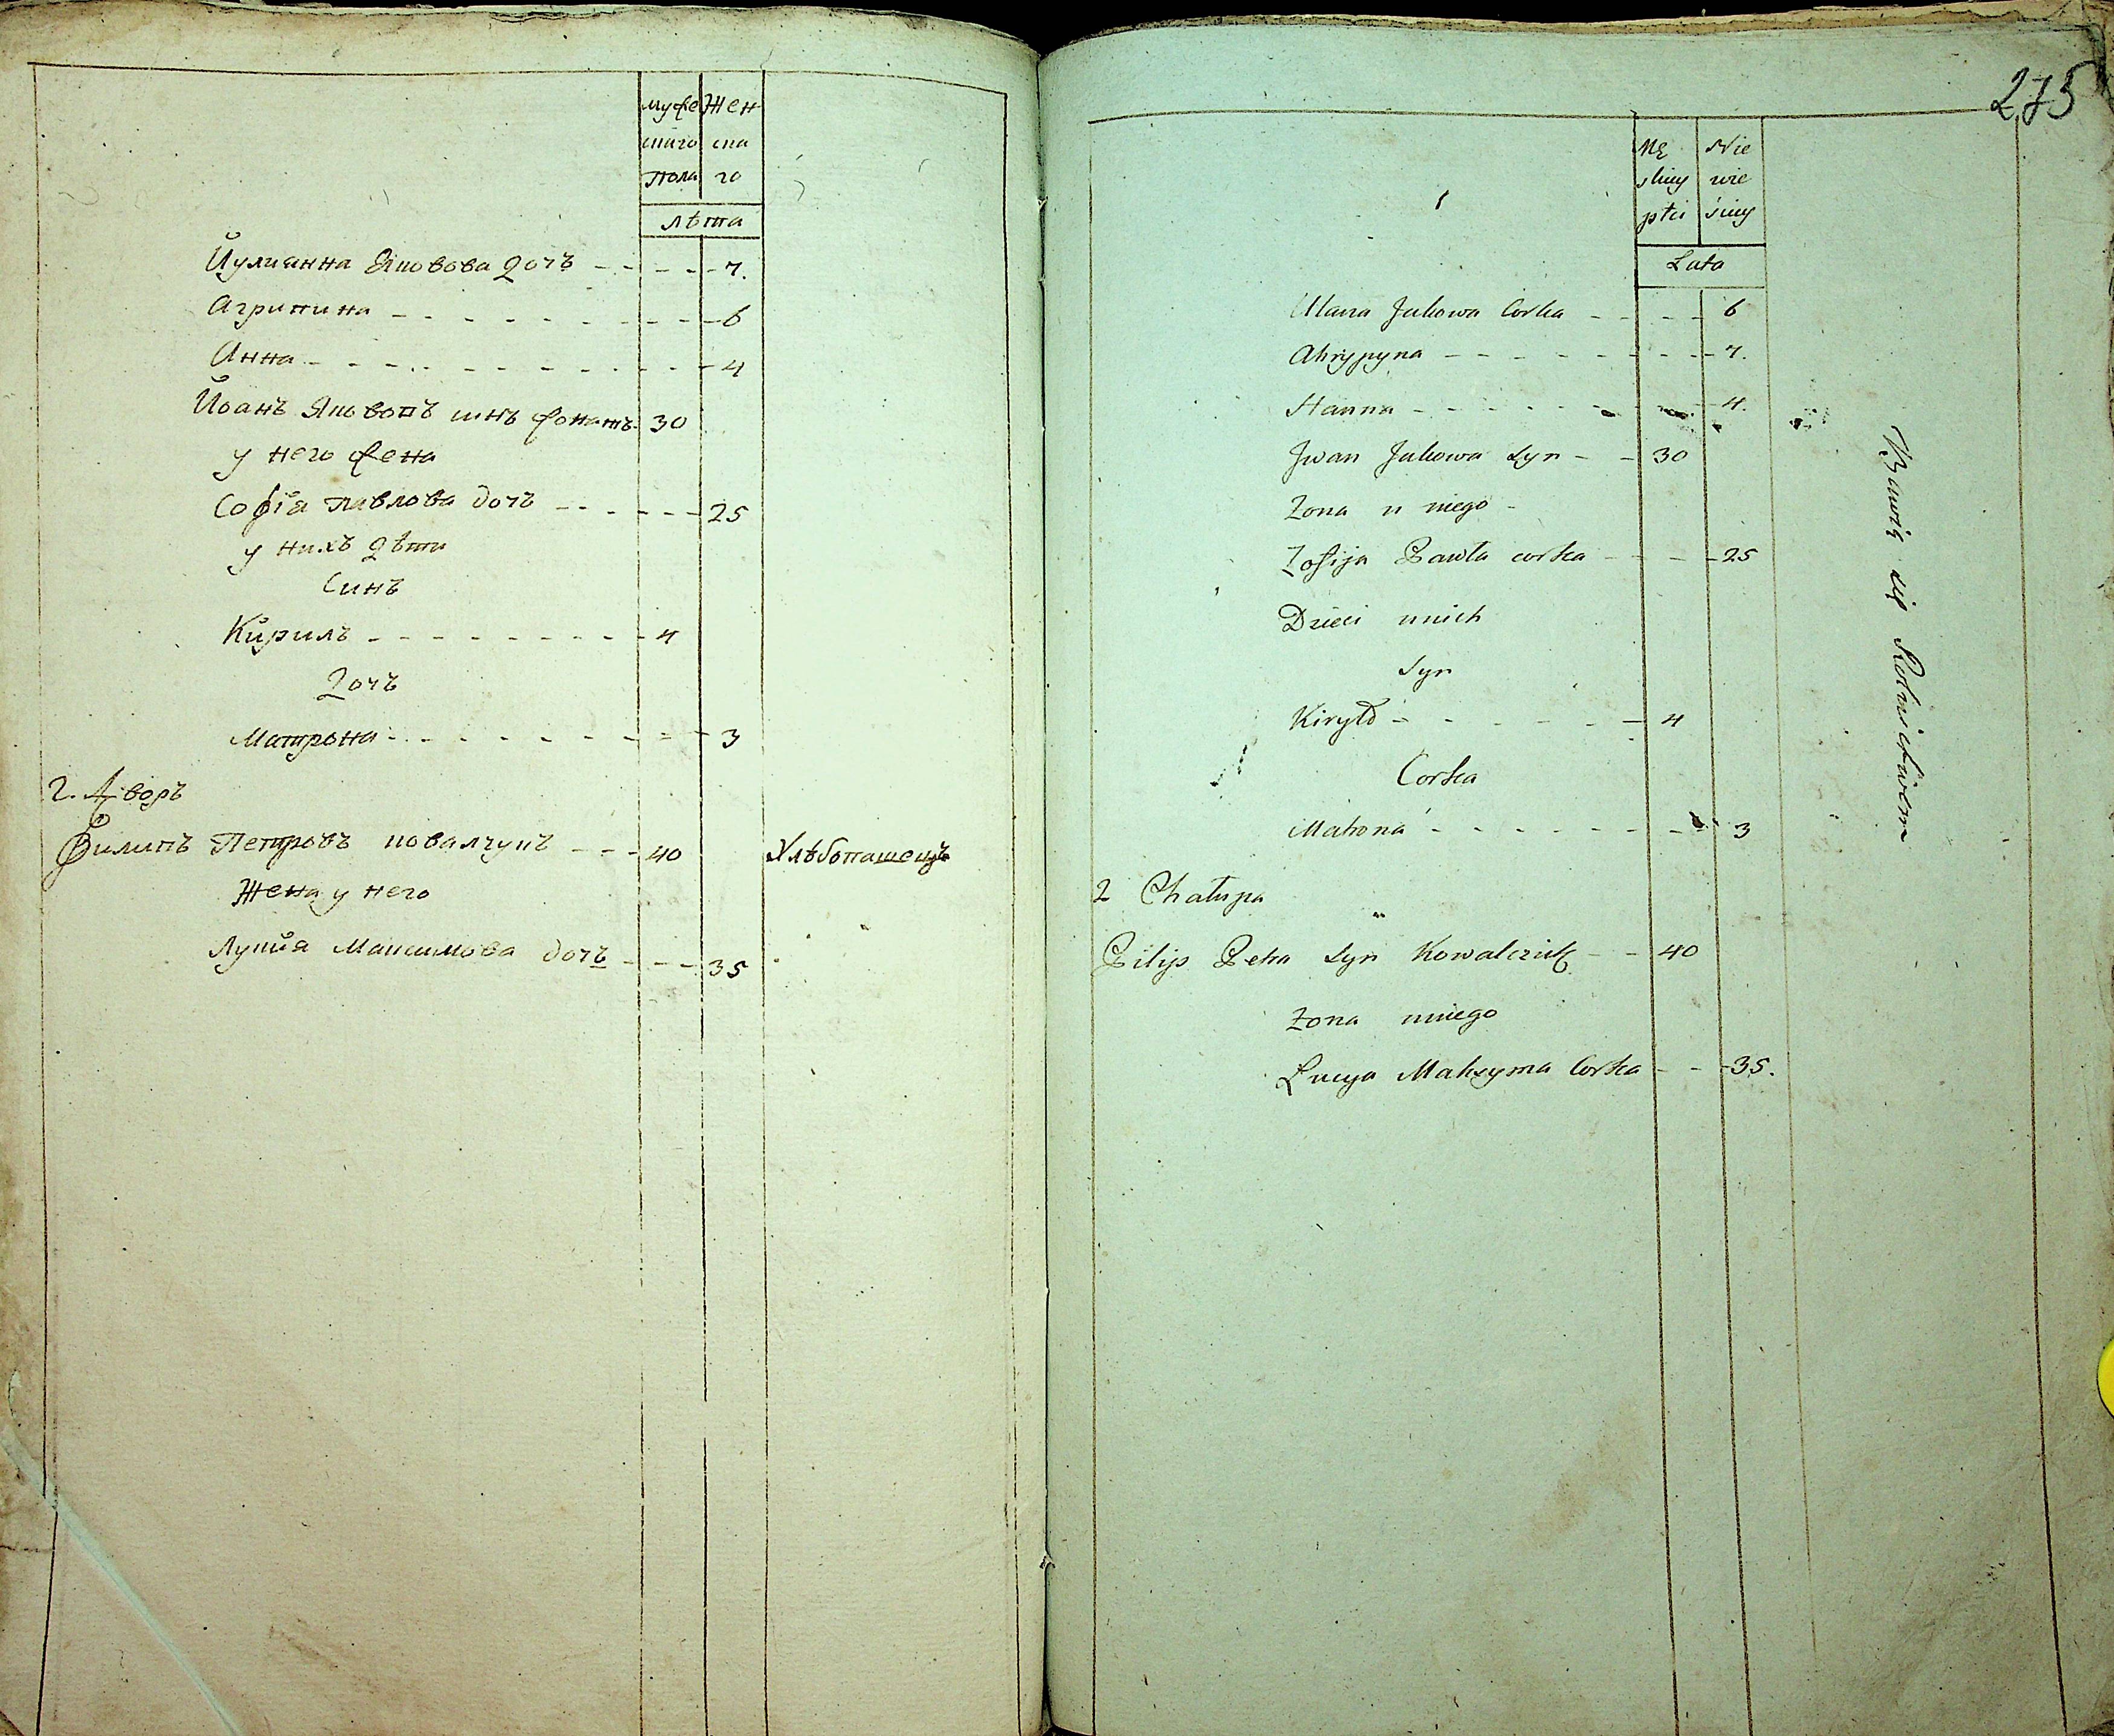 муже Жен
скаго ска
пола го
лѣта
Йулианна Яковова дочъ - - - - 7.
Агрипина - - - - - - - - - 6
Анна - - - - - - - - - - 4
Йоанъ Якововъ синъ женатъ 30
у него жена
Софїа павлова дочъ - - - - - 25
у нихъ дѣти
Синъ
Кирилъ - - - - - - - - - 4
дочъ
Матрона - - - - - - - - 3
2. Дворъ
Филипъ Петровъ ковалчукъ - - - 40 Хлѣбопашецъ
Жена у него
Лукия Максимова дочъ - - - 35
275
Mę Nie
skiey wie
płci ściey
Lata
Ulana Jakowa Corka - - - - 6
Ahrypyna - - - - - - - - 7.
Hanna - - - - - - - - 4.
Jwan Jakowa Syn - - 30
Zona u niego -
Zofija Pawła corka - - - 25
Dzieci unich
Syn
Kiryło - - - - - - 4
Corka
Matrona - - - - - - - 3
2 Chałupa
Pilip Petra Syn Kowalczuk - - 40
Zona uniego
Łucya Maksyma Corka - - - 35.
Bawią się Rolnictwem